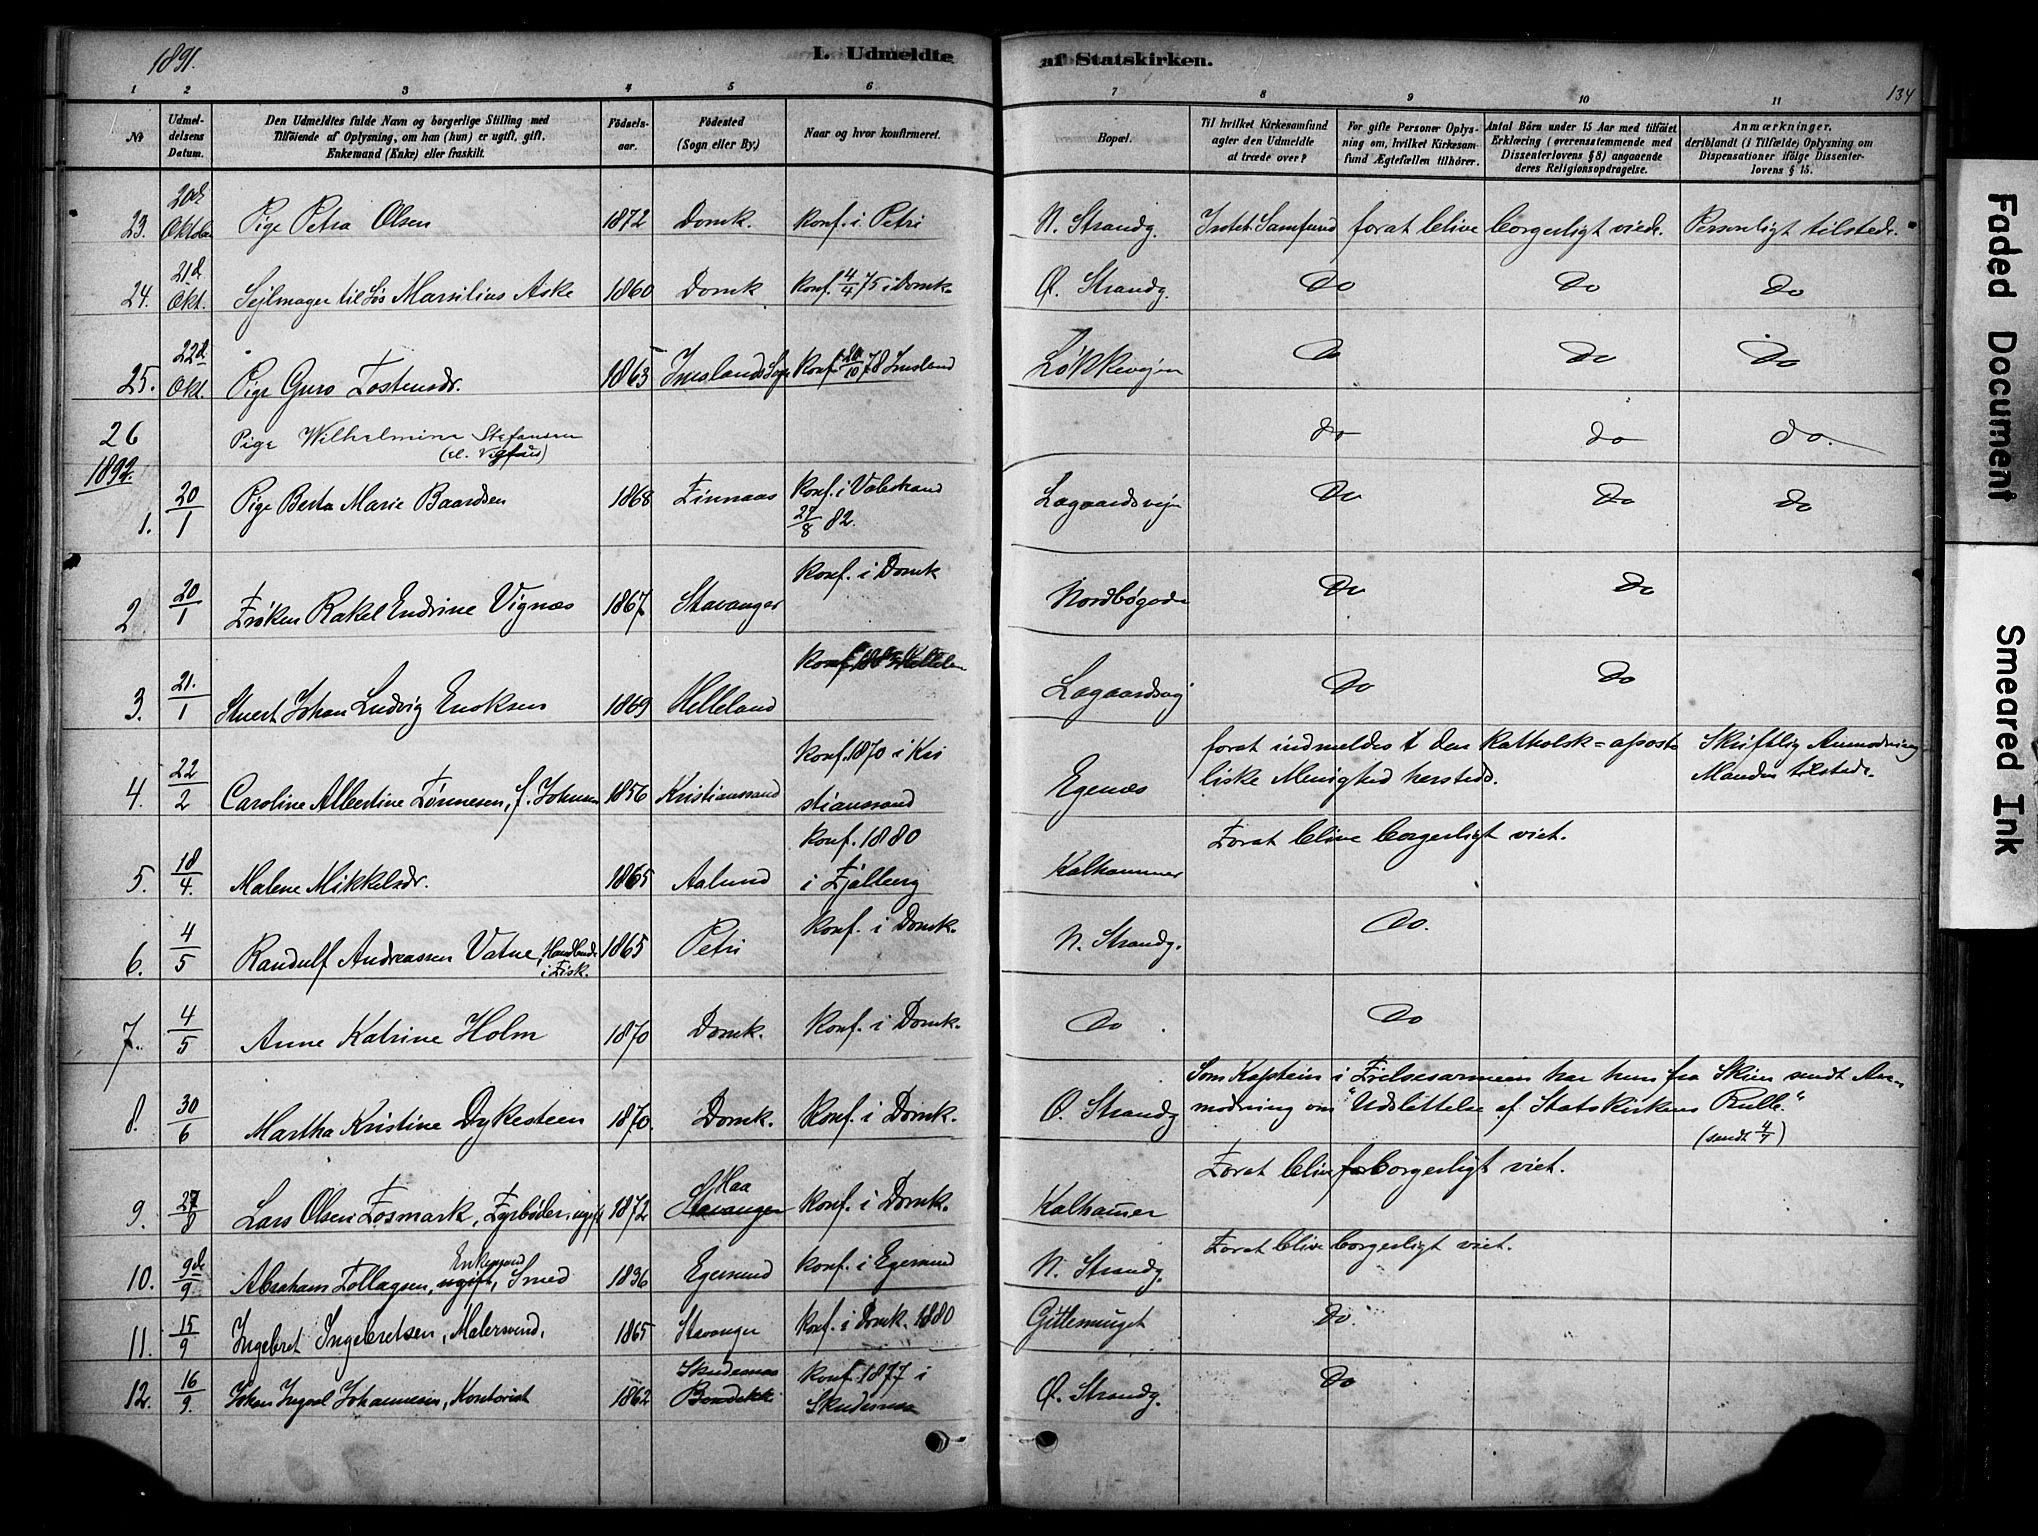 1891.
I. Udmeldte af Statskirken.
134
1 2 3 4 5 6 7 8 9 10 11
No
Udmel-
delsens
Datum.
Den Udmeldtes fulde Navn og borgerlige Stilling med
Tilföiende af Oplysning, om han (hun) er ugift, gift,
Enkemand (Enke) eller fraskilt.
Födsels-
aar.
Födested
(Sogn eller By.)
Naar og hvor konfirmeret.
Bopæl.
Til hvilket Kirkesamfund
agter den Udmeldte
at træde over?
For gifte Personer Oplys-
ning om, hvilket Kirkesam-
fund Ægtefællen tilhörer.
Antal Börn under 15 Aar med tilföiet
Erklæring (overensstemmende med
Dissenterlovens § 8) angaaende
deres Religionsopdragelse.
Anmærkninger,
deriblandt (i Tilfælde) Oplysning om
Dispensationer ifölge Dissenter-
lovens § 15.
23. 20de Oktober Pige Petra Olsen 1872 Domk. Konf. i Petri N. Strandg. Intet Samfund forat blive borgerligt viede. Personligt tilstede.
24. 21de Okt. Sejlmager til Søs Marsilius Aske 1860 Domk Konf. 4/4 75 i Domk. Ø. Strandg. Do Do Do
25. 22de Okt. Pige Guro Tostensdr. 1863 Imslands Sogn Konf. 20/10 78 Imsland Løkkevejen Do Do Do
26 Pige Wilhelmine Stefansen do do do.
(el. Vigfus)
1892.
1. 20/1 Pige Berta Marie Baardsen 1868 Finnaas Konf. i Valestrand
27/8 82. Lagaardsvejn Do Do Do
2 20/1 Frøken Rakel Endrine Vignæs 1867 Stavanger Konf. i Domk Nordbøgade Do Do
3. 21./1 Stuert Johan Ludvig Enoksen 1869 Helleland Konf. Lagaardsvej Do Do
4. 22/2 Caroline Albertine Tønnesen, f. Johnsen 1856 Kristianssand Konf. 1870 i Kri
stianssand Egenæs forat indmeldes i den Katholsk=aposto
liske Menighed hersteds. Skriftlig Anmodning
Manden tilstede.
5. 18/4. Malene Mikkelsdr. 1865 Aalund Konf. 1880
i Fjelberg Kalhammer Forat blive borgerligt viet.
6. 4/5 Randulf Andreassen Vatne, Handlende
i Fisk. 1865 Petri Konf. i Domk. N. Strandg. Do.
7. 4/5 Anne Katrine Holm 1870 Domk. Konf. i Domk. Do Do
8. 30/6 Martha Kristine Dykesteen 1870. Domk. Konf. i Domk. Ø. Strandg Som Kaptein i Frelsesarmeen har hun fra Skien sendt An-
modning om "Udslettelse af Statskirkens Rulle."
(sendt 4/7)
9. 27/8 Lars Olsen Fosmark, Fyrbøder, ugift 1872 Haa
Stavanger Konf. i Domk. Kalhamer Forat blive borgerligt viet.
10. 9de/9 Abraham Tollagsen, ugift, Enkemand Smed 1836 Egersund Konf. i Egersund N. Strandg. Forat blive borgerligt viet.
11. 15/9 Ingebret Ingebretsen, Malersvend, 1865 Stavanger Konf. i Domk. 1880 Gittemuget Do.
12. 16/9. Johan Ingval Johannesen, Kontorist 1862 Skudesnæs Konf. 1877 i
Skudesnæs Ø. Strandg. Do
Faded Document
Smeared Ink